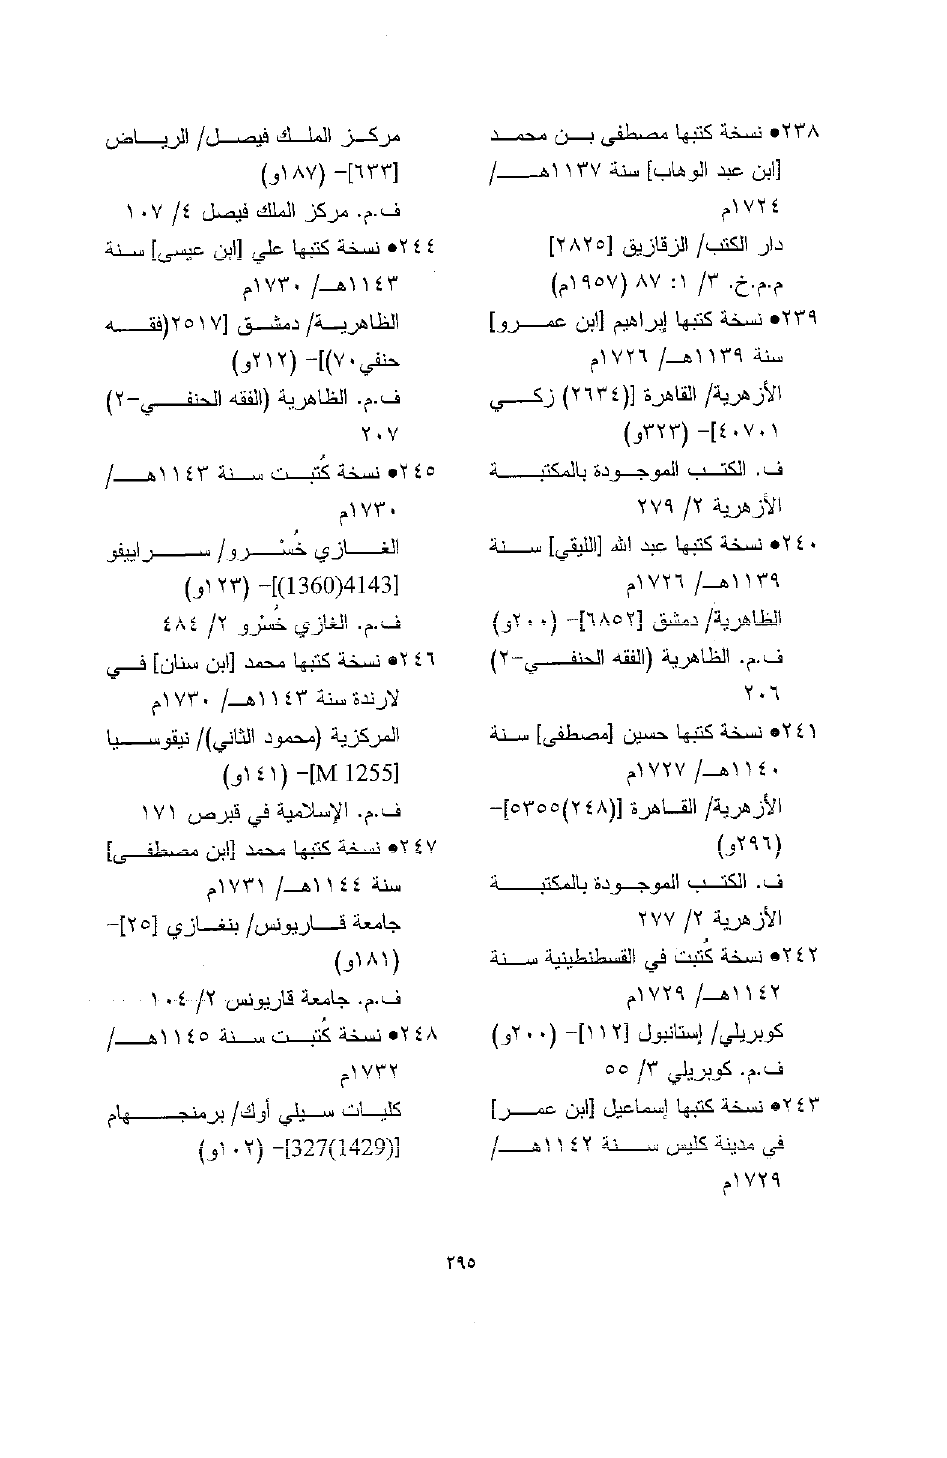 ٢٣٨• نسخة كتبها مصطفى بن محمد
[ابن عبد الوهاب] سنة ١١٣٧هـ/
١٧٢٤م
دار الكتب/ الزقازيق [٢٨٢٥]
م.م.خ. ٣/ ١: ٨٧ (١٩٥٧م)
٢٣٩• نسخة كتبها إبراهيم [ابن عمرو]
سنة ١١٣٩هـ/ ١٧٢٦م
الأزهرية/ القاهرة [(٢٦٣٤) زكي
٤٠٧٠١]– (٣٢٣و)
ف. الكتب الموجودة بالمكتبة
الأزهرية ٢/ ٢٧٩
٢٤٠• نسخة كتبها عبد الله [الليقي] سنة
١١٣٩هـ/ ١٧٢٦م
الظاهرية/ دمشق [٦٨٥٢]– (٢٠٠و)
ف.م. الظاهرية (الفقه الحنفي–٢)
٢٠٦
٢٤١• نسخة كتبها حسين [مصطفى] سنة
١١٤٠هـ/ ١٧٢٧م
الأزهرية/ القاهرة [(٢٤٨)٥٣٥٥]–
(٢٩٦و)
ف. الكتب الموجودة بالمكتبة
الأزهرية ٢/ ٢٧٧
٢٤٢• نسخة كُتبت في القسطنطينية سنة
١١٤٢هـ/ ١٧٢٩م
كوبريلي/ إستانبول [١١٢]– (٢٠٠و)
ف.م. كوبريلي ٣/ ٥٥
٢٤٣• نسخة كتبها إسماعيل [ابن عمر]
في مدينة كليس سنة ١١٤٢هـ/
١٧٢٩م
مركز الملك فيصل/ الرياض
[٦٣٣]– (١٨٧و)
ف.م. مركز الملك فيصل ٤/ ١٠٧
٢٤٤• نسخة كتبها علي [ابن عيسى] سنة
١١٤٣هـ/ ١٧٣٠م
الظاهرية/ دمشق [٢٥١٧(فقه
حنفي٧٠)]– (٢١٢و)
ف.م. الظاهرية (الفقه الحنفي–٢)
٢٠٧
٢٤٥• نسخة كُتبت سنة ١١٤٣هـ/
١٧٣٠م
الغازي خُسْرو/ سراييفو
[4143(1360)]– (١٢٣و)
ف.م. الغازي خُسْرو ٢/ ٤٨٤
٢٤٦• نسخة كتبها محمد [ابن سنان] في
لارندة سنة ١١٤٣هـ/ ١٧٣٠م
المركزية (محمود الثاني)/ نيقوسيا
[M 1255]– (١٤١و)
ف.م. الإسلامية في قبرص ١٧١
٢٤٧• نسخة كتبها محمد [ابن مصطفى]
سنة ١١٤٤هـ/ ١٧٣١م
جامعة قاريونس/ بنغازي [٢٥]–
(١٨١و)
ف.م. جامعة قاريونس ٢/ ١٠٤
٢٤٨• نسخة كُتبت سنة ١١٤٥هـ/
١٧٣٢م
كليات سيلي أوك/ برمنجهام
[327(1429)]– (١٠٢و)
٢٩٥